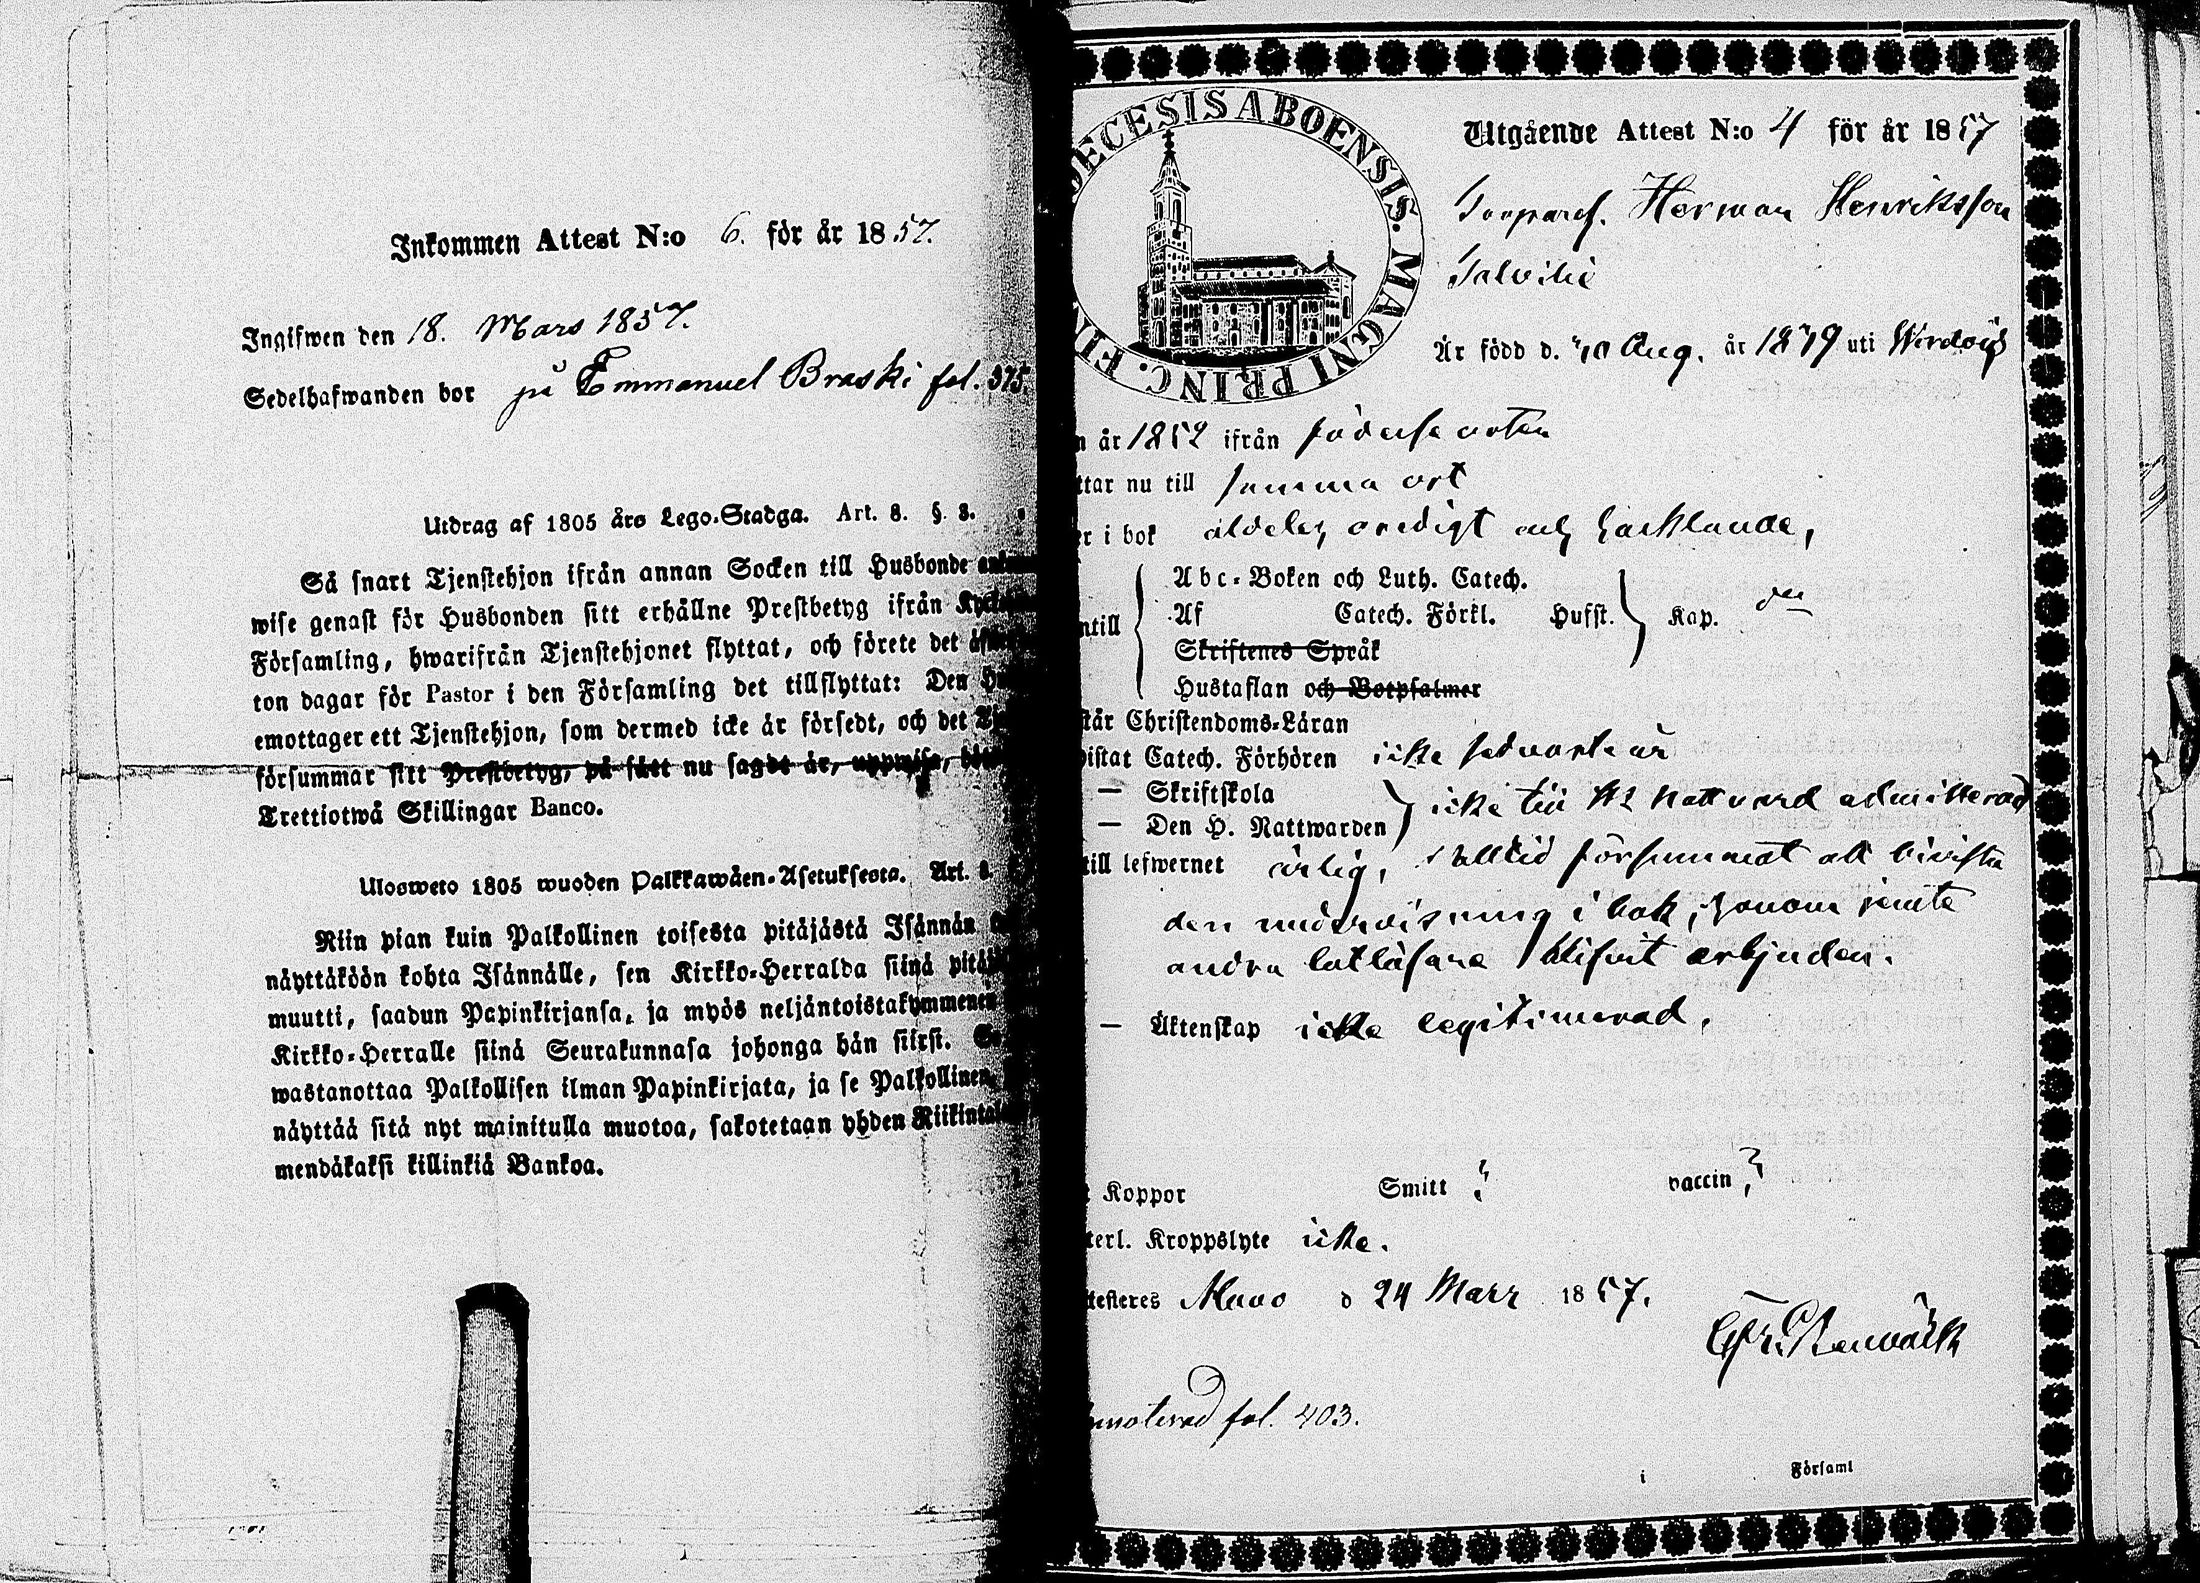 Inkommen Attest N:o 6. för år 1857.
Ingifwen den 18. Mars 1857.
Sedelhafwanden bor på Emmanuel Braski fol. 375.
Utdrag af 1805 års Lego-Stadga. Art. 8. §. 3.
Så snart Tjenstehjon ifrån annan Socken till Husbonde
wise genast för Husbonden sitt erhållne Prestbetyg ifrån
Församling, hwarifrån Tjenstehjonet flyttat, och förete det
ton dagar för Pastor i den Församling det tillflyttat: Den
emottager ett Tjenstehjon, som dermed icke är försedt, och det
försummar sitt Prestbetyg, på sätt nu sagdt är, uppwisa,
Trettiotwå Skillingar Banco.
Ulosweto 1805 wuoden Palkkawäen-Asetuksesta. Art. 8.
Niin pian kuin Palkollinen toisesta pitäjästä Isännän
näyttäköön kohta Isännälle, sen Kirkko-Herralda siinä
muutti, saadun Papinkirjansa, ja myös neljäntoistakymmenen
Kirkko-Herralle siinä Seurakunnasa johonga hän siirst.
wastanottaa Palkollisen ilman Papinkirjata, ja se Palkollinen,
näyttää sitä nyt mainitulla muotoa, sakotetaan yhden
mendäkaksi killinkiä Bankoa.
DECESIS ABOENSIS. MAGNI PRINC. FIN
Utgående Attest N:o 4 för år 1857
Herman Henriksson
Är född d. Aug. år uti
år 1852 ifrån födelse orten
ttar nu till samma ort
r i bok aldeles oredigt och hacklande,
ntill
Abc-Boken och Luth. Catech.
Af Catech. Förkl. Husst. Kap.
Skriftenes Språk
Hustaflan och Botpsalmer
står Christendoms-Läran
wistat Catech. Förhören icke sednaste år
— Skriftskola
— Den H. Nattwarden
icke till H Nattvard admitterad
till lefwernet ärlig, alltid försummat att bivista
den undervisning i bok, honom jemte
andra lattläsare blifvit erbjuden.
— Äktenskap icke legitimerad.
Koppor Smitt ? vaccin ?
terl. Kroppslyte icke.
testeres Muno d 24 Mars 1857.
fol. 403.
i Församl